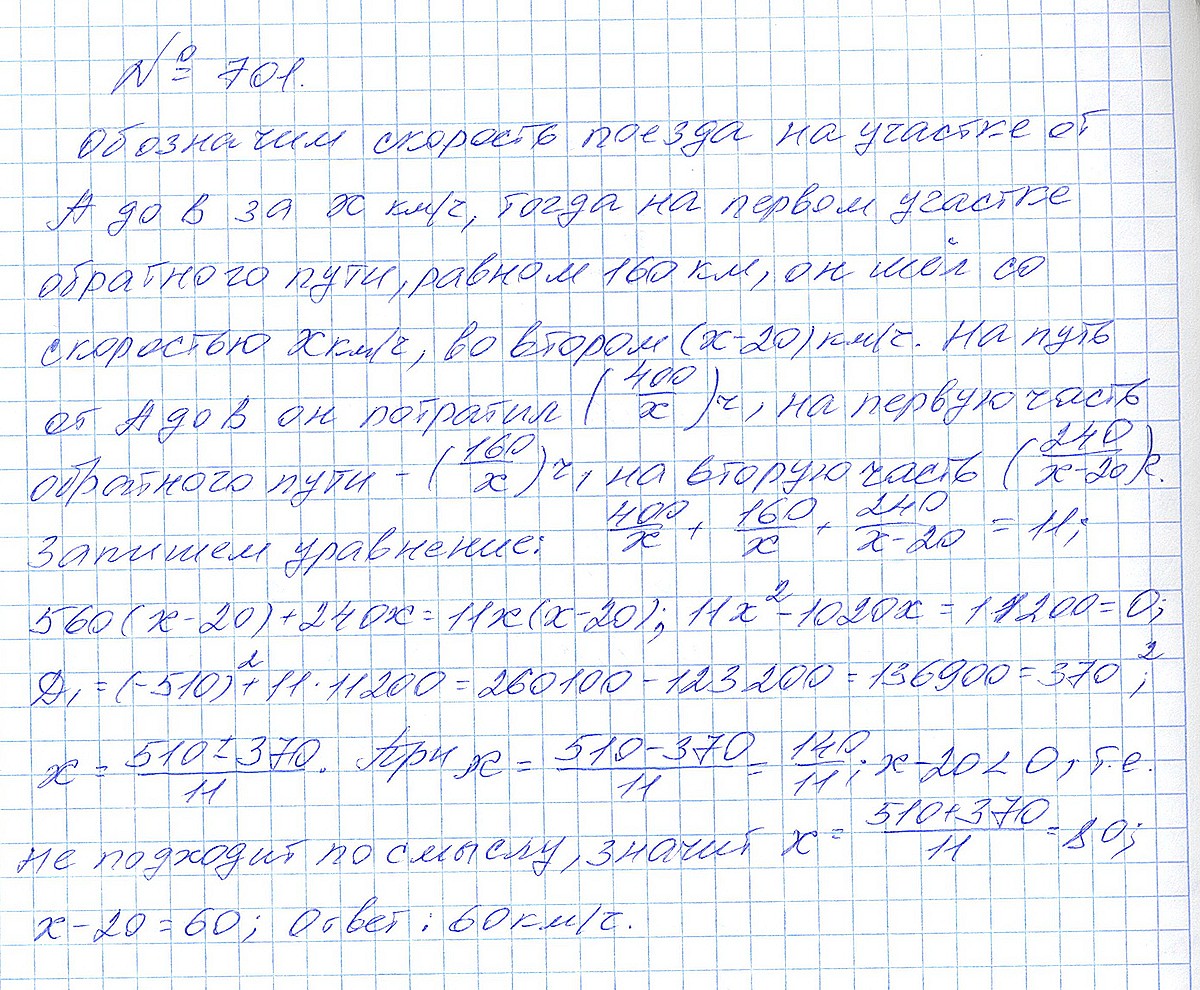 № 701.
Обозначим скорость поезда на участке от
А до В за x км/ч, тогда на первом участке
обратного пути, равном 160 км, он шёл со
скоростью x км/ч, во втором (x-20) км/ч. На путь
от А до В он потратил (400/x) ч, на первую часть
обратного пути - (160/x) ч, на вторую часть (240/(x-20)) ч.
Запишем уравнение: 400/x + 160/x + 240/(x-20) = 11;
560(x-20)+240x=11x(x-20); 11x²-1020x=11200=0;
D₁=(-510)²+11·11200=260100-123200=136900=370²;
x = (510±370)/11. При x = (510-370)/11 = 140/11; x-20<0, т.е.
не подходит по смыслу, значит x = (510+370)/11 = 80;
x-20=60; Ответ: 60 км/ч.